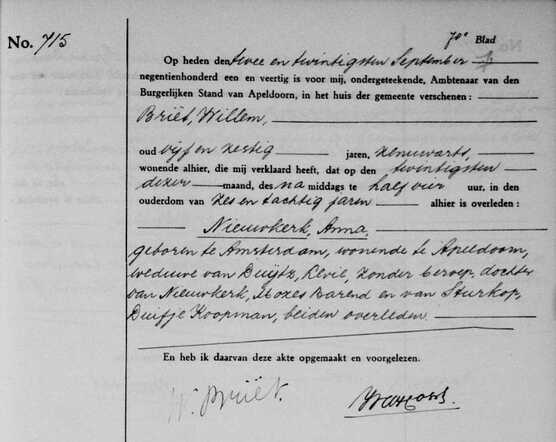 No. 715
70e Blad
Op heden den twee en twintigsten September
negentienhonderd een en veertig is voor mij, ondergeteekende, Ambtenaar van den
Burgerlijken Stand van Apeldoorn, in het huis der gemeente verschenen:
Briët, Willem,
oud vijf en zestig jaren, zenuwarts,
wonende alhier, die mij verklaard heeft, dat op den twintigsten
dezer maand, des na middags te half vier uur, in den
ouderdom van zes en tachtig jaren alhier is overleden:
Nieuwkerk, Anna,
geboren te Amsterdam, wonende te Apeldoorn,
weduwe van Duijtz, Levie, zonder beroep, dochter
van Nieuwkerk, Barend en van Sturkop,
Duifje Koopman, beiden overleden.
En heb ik daarvan deze akte opgemaakt en voorgelezen.
W. Briët.